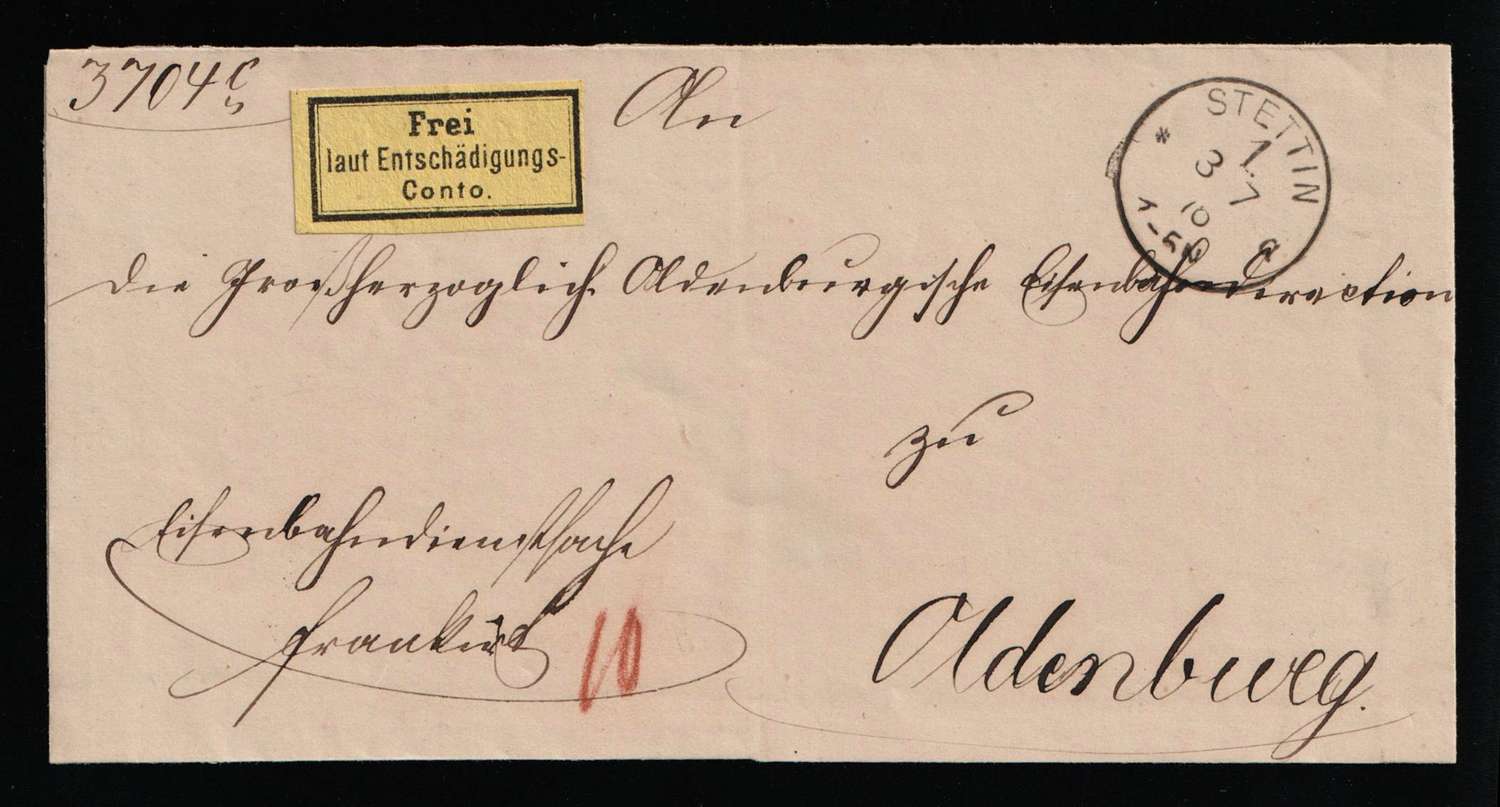 3704 c
Frei
laut Entschädigungs-
Conto.
An
STETTIN
die Großherzoglich Oldenburgische Eisenbahndirection
zu
Eisenbahndienstsache
frankirt 10
Oldenburg.